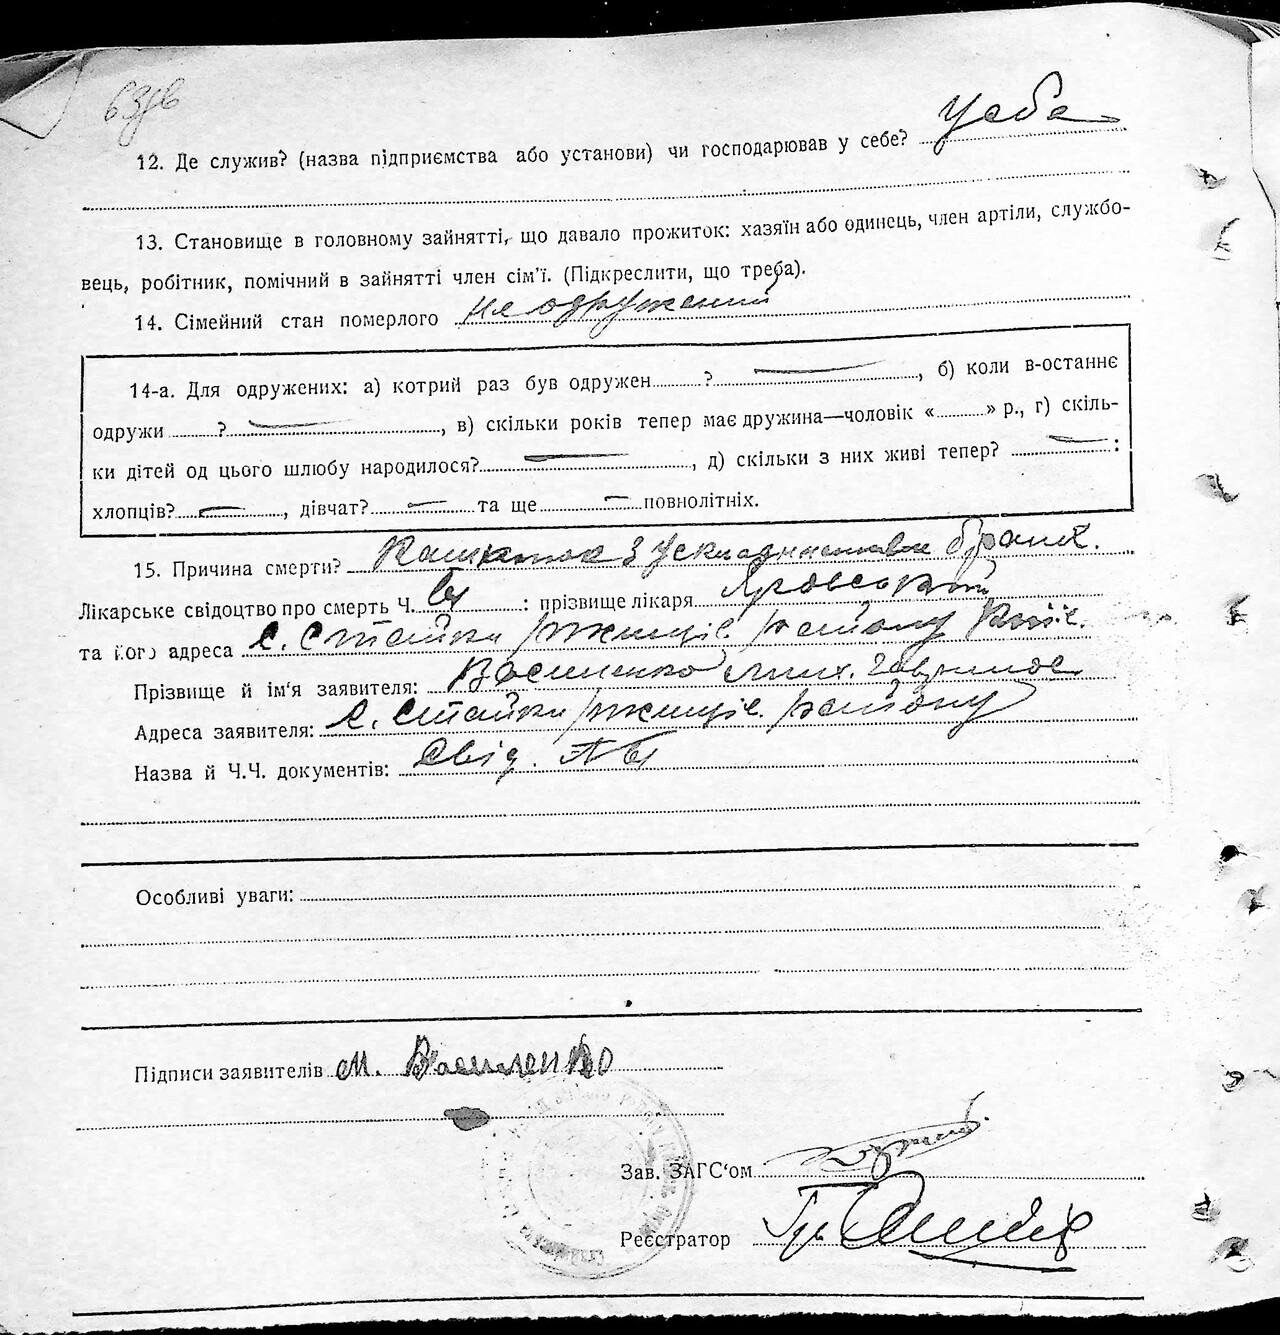 12. Де служив? (назва підприємства або установи) чи господарював у себе? у себе
13. Становище в головному зайнятті, що давало прожиток: хазяїн або одинець, член артіли, службо-
вець, робітник, помічний в зайнятті член сім'ї. (Підкреслити, що треба).
14. Сімейний стан померлого не одружений
14-а. Для одружених: а) котрий раз був одружен ? , б) коли в-останнє
одружи ? , в) скільки років тепер має дружина—чоловік « » р., г) скіль-
ки дітей од цього шлюбу народилося? , д) скільки з них живі тепер? :
хлопців? , дівчат? та ще повнолітніх.
15. Причина смерти?
Лікарське свідоцтво про смерть Ч. : прізвище лікаря Яровський
та його адреса с. Стайки Ржищів. району Київ.
Прізвище й ім'я заявителя: Василенко Мих.
Адреса заявителя: с. Стайки Ржищів. району
Назва й Ч.Ч. документів: Свід.
Особливі уваги:
Підписи заявителів М. Василенко
Зав. ЗАГС'ом
Реєстратор